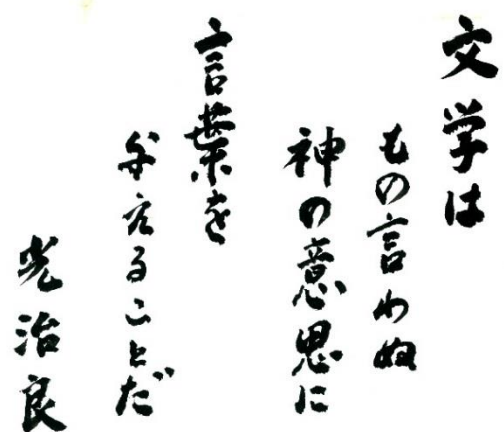 文学は
もの言わぬ
神の意思に
言葉を
与えることだ
光治良